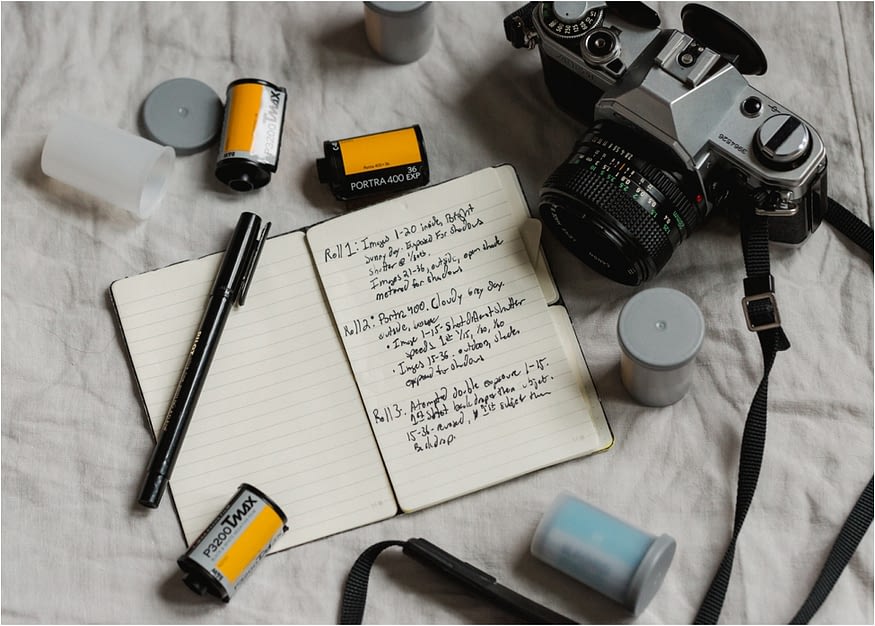 P3200 TMAX
Porta 400
36
PORTRA 400 EXP
3964526
Roll 1: Images 1-20 inside, Bright
sunny day. Exposed for shadows
Shutter @
Images 21-36, outside, open shade
metered for shadows
Roll 2: Portra 400. Cloudy Grey day.
outside,
• Image 1-15- Shot different shutter
speeds 1st 1/15, 1/30, 1/60
• Images 15-36. outdoors, shade
exposed for shadows
Roll 3: Attempted double exposure 1-15.
1st shot backdrop then subject.
15-36- reversed, 1st subject then
Backdrop.
P3200 TMAX